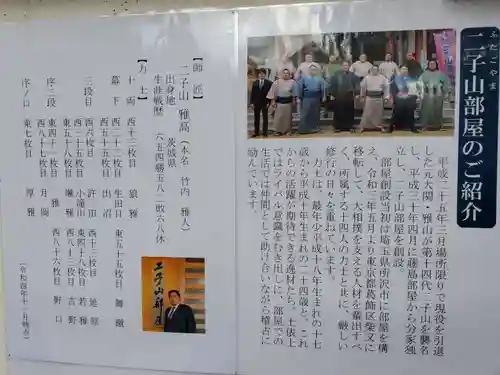 ふたごやま
二子山部屋のご紹介
平成二十五年三月場所限りで現役を引退
した元大関・雅山が第十四代二子山を襲名
し、平成三十年四月に藤島部屋から分家独
立し、二子山部屋を創設。
部屋創設当初は埼玉県所沢市に部屋を構
え、令和三年五月より東京都葛飾区柴又に
移転して、大相撲を支える人材を輩出すべ
く、所属する十四人の力士と共に、厳しい
修行の日々を重ねています。
力士は、最年少平成十八年生まれの十七
歳から平成十年生まれの二十四歳と、これ
からの活躍が期待できる逸材たち。土俵上
ではライバル意識をむき出しに、部屋での
生活では仲間として助け合いながら稽古に
励んでいます。
【師匠】
二子山 雅高 (本名 竹内 雅人)
出身地 茨城県
生涯戦歴 六五四勝五八一敗六八休
【力士】
十両 西十三枚目 狼雅
幕下 西二十二枚目 生田目 東五十五枚目
西五十五枚目 出沼
三段目 西六枚目 西十三枚目 延原
西二十五枚目 小滝山 東四十八枚目 若雅
東五十八枚目 颯雅 西八十一枚目 吉野
序二段 東四十二枚目 月岡 西八十六枚目 野口
西八十七枚目
序ノ口 東七枚目 厚雅
(令和四年十一月時点)
二子山部屋